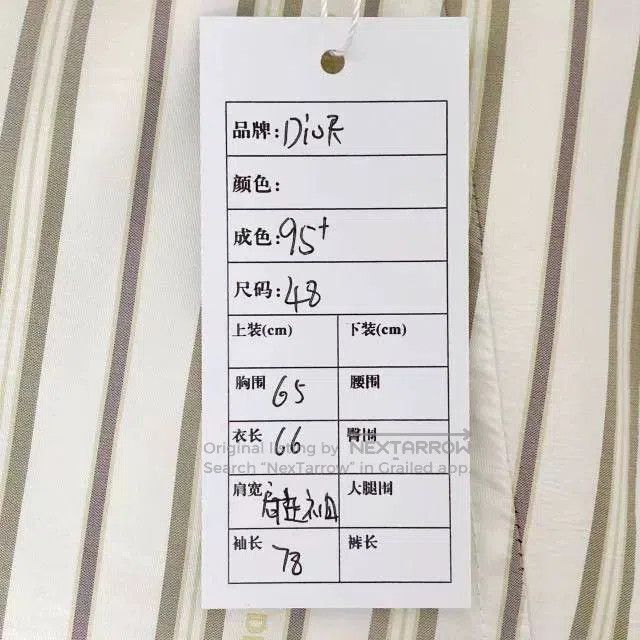 品牌: Dior
颜色:
成色: 95+
尺码: 48
上装(cm) 下装(cm)
胸围 65 腰围
衣长 66 臀围
Original listing by NEXTARROW
Search "NexTarrow" in Grailed app
肩宽 肩连袖 大腿围
袖长 78 裤长